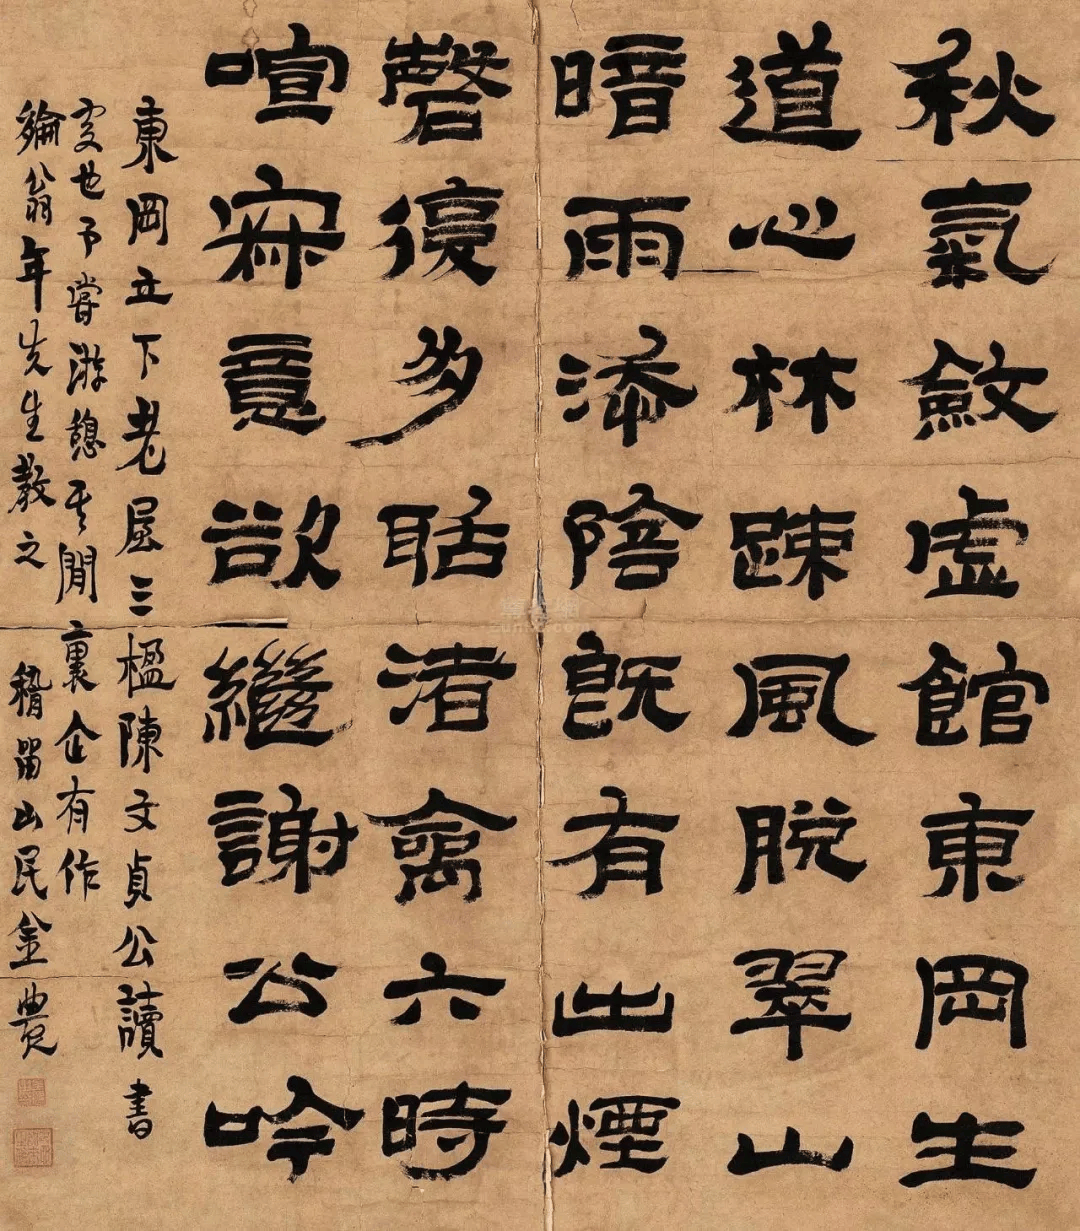 秋氣斂虛館東岡生
道心林疎風脫翠山
暗雨添陰既有出煙
磬復多聒渚禽六時
喧寂意欲繼謝公吟
東岡丘下老屋三楹陳文貞公讀書
處也予嘗游憩其間褱企有作
翁年先生教之 稽留山民金農